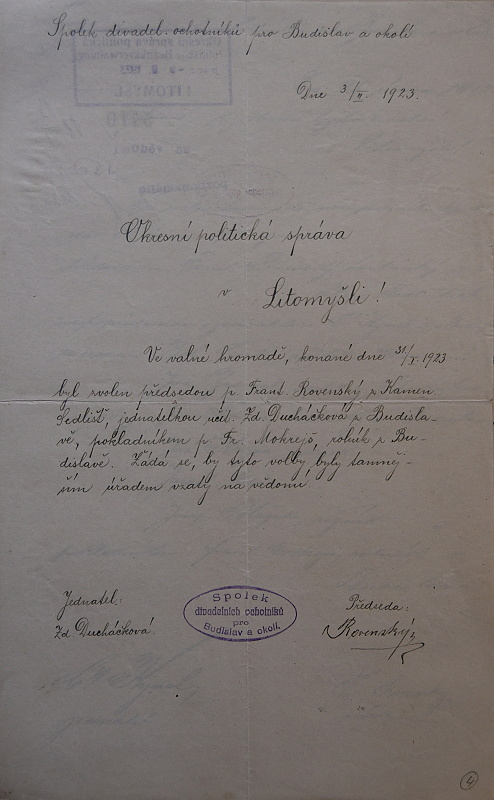 Spolek divadel. ochotníků pro Budislav a okolí
Dne 3./II. 1923.
Okresní politická správa
v
Litomyšli!
Ve valné hromadě, konané dne 31/X. 1923
byl zvolen předsedou p. Frant. Rovenský z Kamen.
Sedlišť, jednatelkou učit. Zd. Ducháčková z Budisla-
vě, pokladníkem p. Fr. Mokrejš, rolník z Bu-
dislavě. Žádá se, by tyto volby byly tamněj-
ším úřadem vzaty na vědomí.
Jednatel:
Zd. Ducháčková.
Spolek
divadelních ochotníků
pro
Budislav a okolí.
Předseda:
Rovenský
4